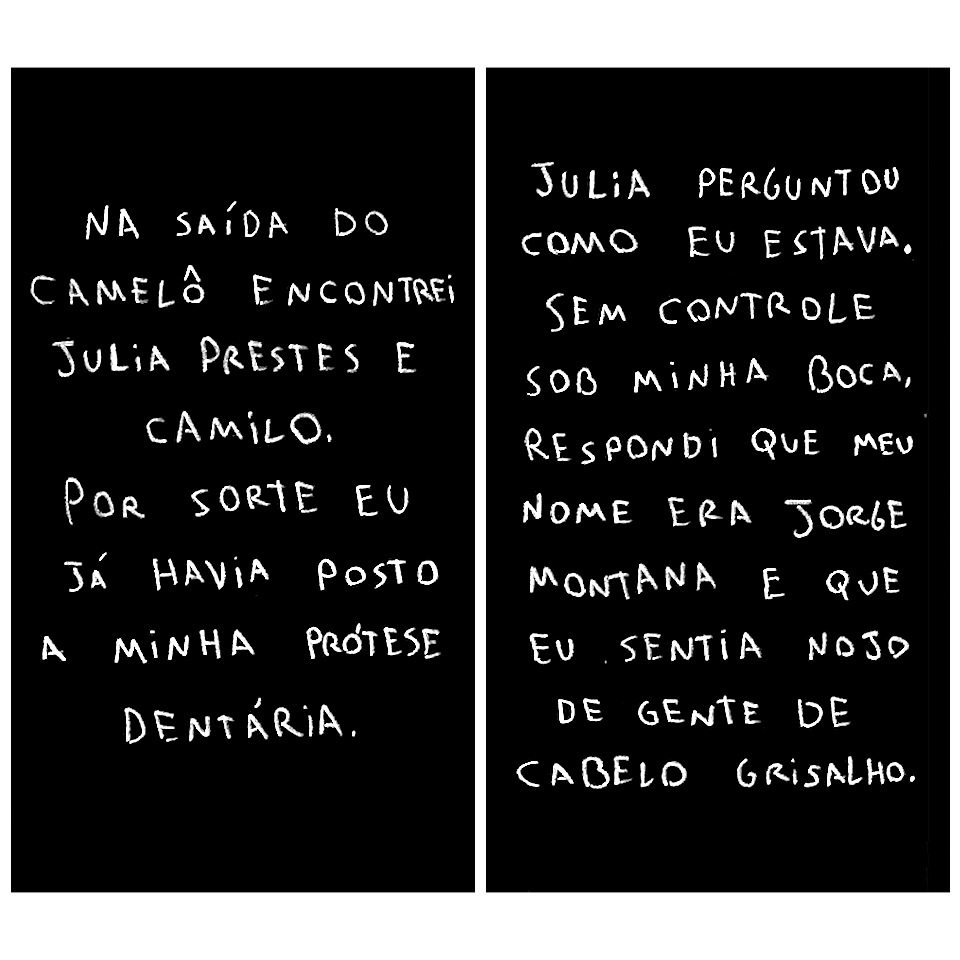 NA SAÍDA DO
CAMELÔ ENCONTREI
JULIA PRESTES E
CAMILO.
POR SORTE EU
JÁ HAVIA POSTO
A MINHA PRÓTESE
DENTÁRIA.
JULIA PERGUNTOU
COMO EU ESTAVA.
SEM CONTROLE
SOB MINHA BOCA,
RESPONDI QUE MEU
NOME ERA JORGE
MONTANA E QUE
EU SENTIA NOJO
DE GENTE DE
CABELO GRISALHO.